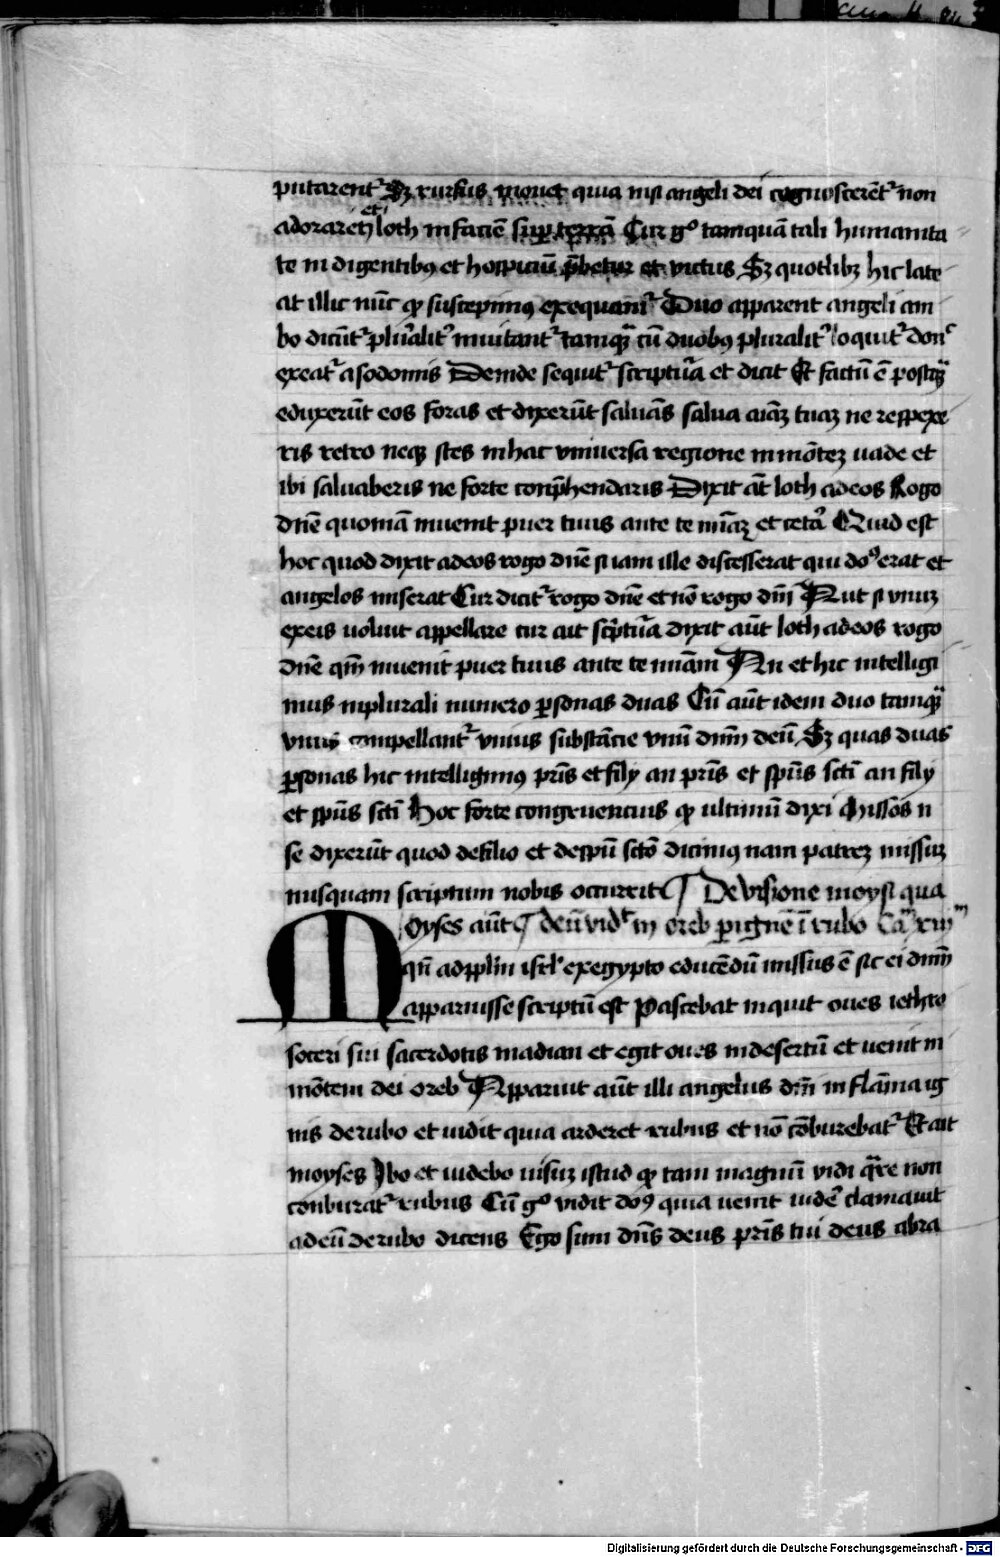 putarent² Sz rursus mouet quia nisi angeli dei cognoscerēt² non
adoraret² et loth in faciē sup terrā Cur g° tamquā tali humanita
te indigentibꝫ et hospiciū p̄betur et victus Sz quotlibz hic late
at illic nūc qꝫ suscepimꝫ exequam² Duo apparent angeli am
bo dicūt² plur̄alit² inuitant² tamqꝫ cū duobꝫ pluralit² loquit² donᶜ
exeat² a sodomis Deinde sequit² scriptur̄a et dicit Et factū ē postqꝫ
eduxerūt eos foras et dixerūt saluās salua aīaz tuaz ne respexe
ris retro neqꝫ stes in hac vniuersa regione in mōtez uade et
ibi saluaberis ne forte conp̄hendaris Dixit āt loth ad eos Rogo
dn̄e quoniā inuenit puer tuus ante te mīaz et ceta² Quid est
hoc quod dixit ad eos rogo dn̄e si iam ille discesserat qui do⁹ erat et
angelos miserat Cur dicit² rogo dn̄e et nō rogo dn̄i Aut si vnuz
ex eis uoluit appellare cur ait sc̄ptur̄a dixit aūt loth ad eos rogo
dn̄e qm̄ inuenit puer tuus ante te mīam An et hic intelligi
mus in plurali numero ꝑsonas duas Cū aūt idem duo tamqꝫ
vnus compellant² vnius substācie vnū dn̄m deū Sz quas duas
ꝑsonas hic intelligimꝫ pr̄is et filij an pr̄is et sp̄us scī an filij
et sp̄us scī Hoc forte congruencius qꝫ ultimū dixi Missos n̄
se dixerūt quod de filio et de sp̄u scō dicimꝫ nam patrez missuz
nusquam scriptum nobis occurrit ¶ De visione moysi qua
Moyses aūt ¶ deū vid² in oreb ꝑ ignē ī rubo Ca^m xiii^m
qn̄ ad pplm̄ isrl' ex egypto educēdū missus ē sic ei dn̄m
apparuisse scriptū est Pascebat inquit oues iethro
soceri sui sacerdotis madian et egit oues in desertū et uenit in
mōtem dei oreb Apparuit aūt illi angelus dn̄i in flāma ig
nis de rubo et uidit quia arderet rubus et nō cōburebat² Et ait
moyses Ibo et uidebo uisuz istud qꝫ tam magnū vidi qr̄e non
conburat² rubus Cū g° vidit do⁹ quia uenit uidē clamauit
ad eū de rubo dicens Ego sum dn̄s deus pr̄is tui deus abra
Digitalisierung gefördert durch die Deutsche Forschungsgemeinschaft - DFG